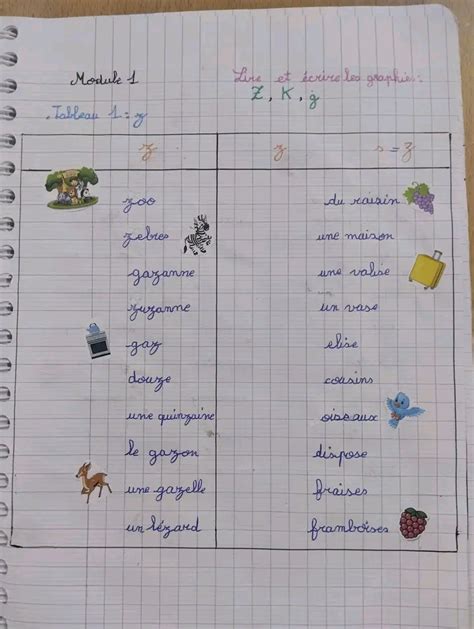 Module 1
Lire et écrire les graphies :
Z, K, g
Tableau 1 = z
z z s = z
zoo du raisin
zebres une maison
gazanne une valise
zuzanne un vase
gaz elise
douze cousins
une quinzaine oiseaux
le gazon dispose
une gazelle fraises
un lézard framboises